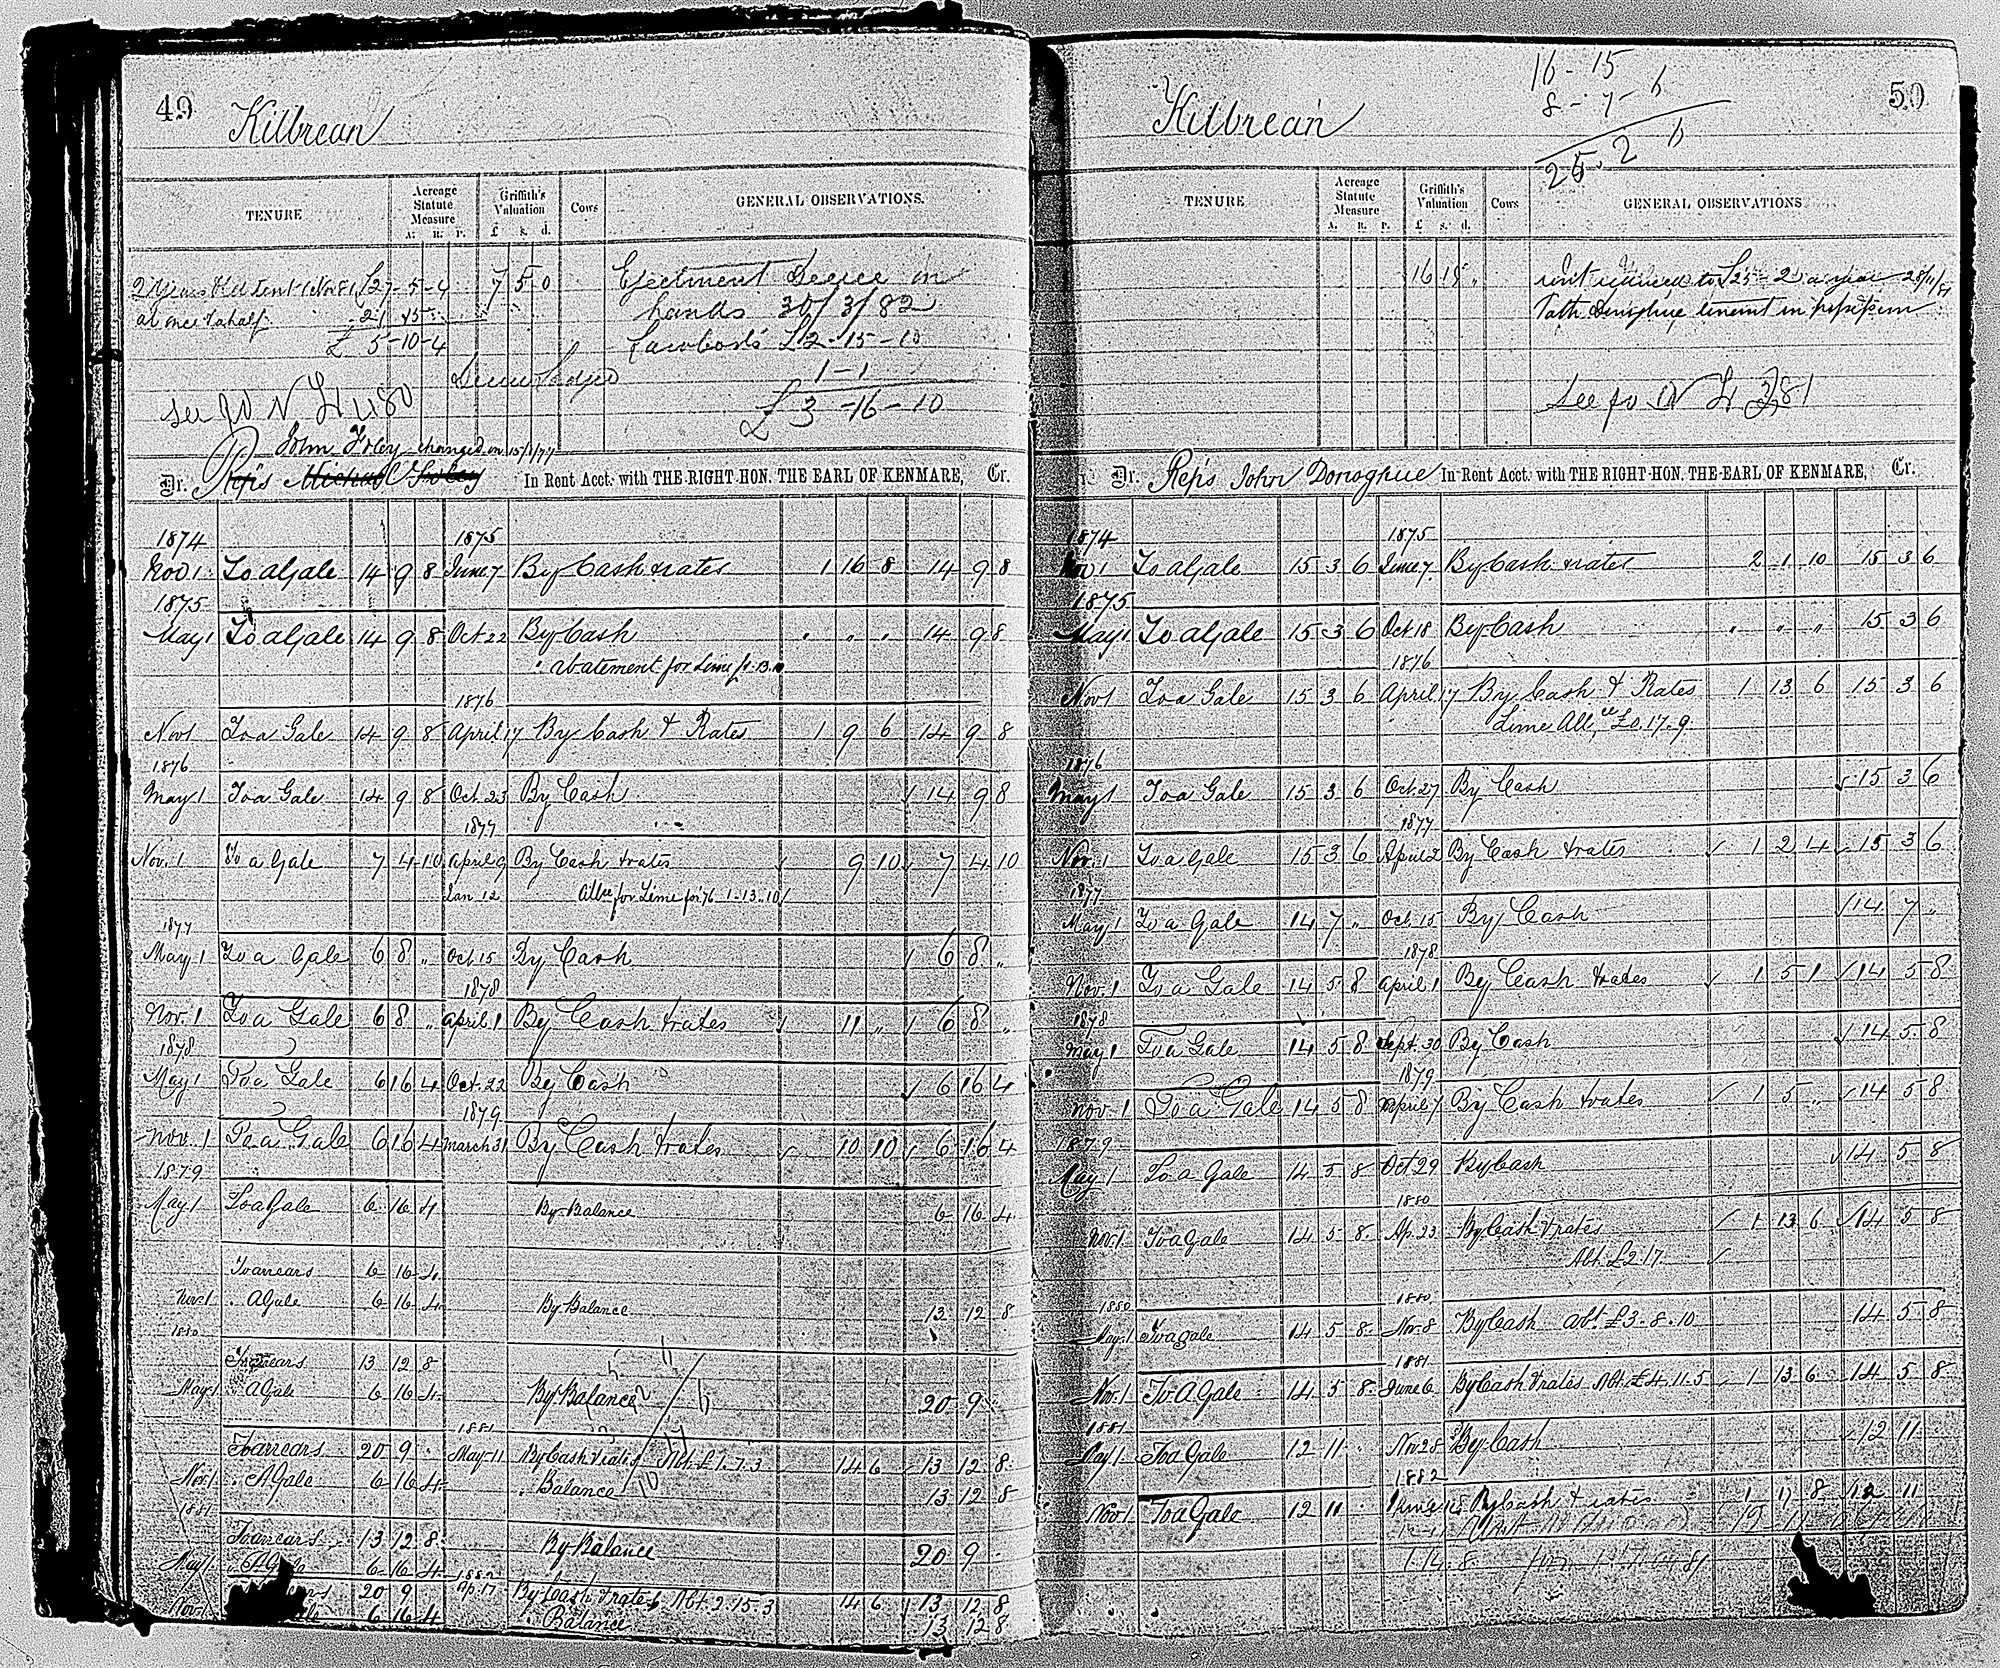 49
Kilbrean
TENURE
Acreage Statute Measure
A. R. P.
Griffith's Valuation
£ s. d.
Cows
GENERAL OBSERVATIONS.
2 years 1 Nov 81 £27-5-4 7 5 0 Ejectment Decree in
at once ½ half 21 15 hands 30/3/82
£ 5-10-4 £2-15-10
1-1
see £ 3-16-10
John Foley changed on 15/1/77
Dr. Reps Michael Foley In Rent Acct. with THE RIGHT HON. THE EARL OF KENMARE, Cr.
1874 1875
Nov 1 To a Gale 14 9 8 June 7 By Cash & rates 1 16 8 14 9 8
1875
May 1 To a Gale 14 9 8 Oct. 22 By Cash " " " 14 9 8
" abatement for Lime £1.13.10
1876
Nov 1 To a Gale 14 9 8 April 17 By Cash & Rates 1 9 6 14 9 8
1876
May 1 To a Gale 14 9 8 Oct. 23 By Cash 14 9 8
1877
Nov. 1 To a Gale 7 4 10 April 9 By Cash & rates 9 10 7 4 10
Jan 12 Allce for Lime for 76 1-13-10
1877
May 1 To a Gale 6 8 " Oct 15 By Cash 6 8 "
1878
Nov. 1 To a Gale 6 8 " April 1 By Cash & rates 11 " 6 8 "
1878
May 1 To a Gale 6 16 4 Oct. 22 By Cash 6 16 4
1879
Nov. 1 To a Gale 6 16 4 March 31 By Cash & rates 10 10 6 16 4
1879
May 1 To a Gale 6 16 4 By Balance 6 16 4
To arrears 6 16 4
Nov 1 " A Gale 6 16 4 By Balance 13 12 8
1880
To arrears 13 12 8
May 1 " A Gale 6 16 4 By Balance 20 9 "
1881
To arrears 20 9 " May 11 By Cash & rates Abt. £1.7.3 14 6 13 12 8
Nov. 1 " A Gale 6 16 4 " Balance 13 12 8
1881
To arrears 13 12 8 By Balance 20 9 "
May 1 " A Gale 6 16 4
1882
20 9 Ap. 17 By Cash & rates Abt. 2.15.3 14 6 13 12 8
Nov 1 6 16 4 " Balance 13 12 8
50
Kilbrean
16-15
8-7-6
25.2 6
TENURE
Acreage Statute Measure
A. R. P.
Griffith's Valuation
£ s. d.
Cows
GENERAL OBSERVATIONS
16 15 " rent reduced to £25-2 a year 28/11/81
Path Donoghue tenant in possession
See fo 381
Dr. Reps John Donoghue In Rent Acct. with THE RIGHT HON. THE EARL OF KENMARE, Cr.
1874 1875
Nov 1 To a Gale 15 3 6 June 7 By Cash & rates 2 1 10 15 3 6
1875
May 1 To a Gale 15 3 6 Oct 18 By Cash " " " 15 3 6
1876
Nov 1 To a Gale 15 3 6 April 17 By Cash & Rates 1 13 6 15 3 6
Lime Allce £0.17.9
1876
May 1 To a Gale 15 3 6 Oct. 27 By Cash 15 3 6
1877
Nov. 1 To a Gale 15 3 6 April 2 By Cash & rates 1 2 4 15 3 6
1877
May 1 To a Gale 14 7 " Oct. 15 By Cash 14 7 "
1878
Nov. 1 To a Gale 14 5 8 April 1 By Cash & rates 1 5 1 14 5 8
1878
May 1 To a Gale 14 5 8 Sept. 30 By Cash 14 5 8
1879
Nov. 1 To a Gale 14 5 8 April 7 By Cash & rates 1 5 " 14 5 8
1879
May 1 To a Gale 14 5 8 Oct 29 By Cash 14 5 8
1880
Nov. 1 To a Gale 14 5 8 Ap. 23 By Cash & rates 1 13 6 14 5 8
Abt. £2.17.
1880 1880
May 1 To a gale 14 5 8 Nov. 8 By Cash abt. £3.8.10 14 5 8
1881
Nov. 1 To A Gale 14 5 8 June 6 By Cash & rates Abt. £4.11.5 1 13 6 14 5 8
1881
May 1 To a Gale 12 11 " Nov 28 By Cash 12 11
1882
Nov 1 To a Gale 12 11 " June By Cash & rates 1 17 8 12 11